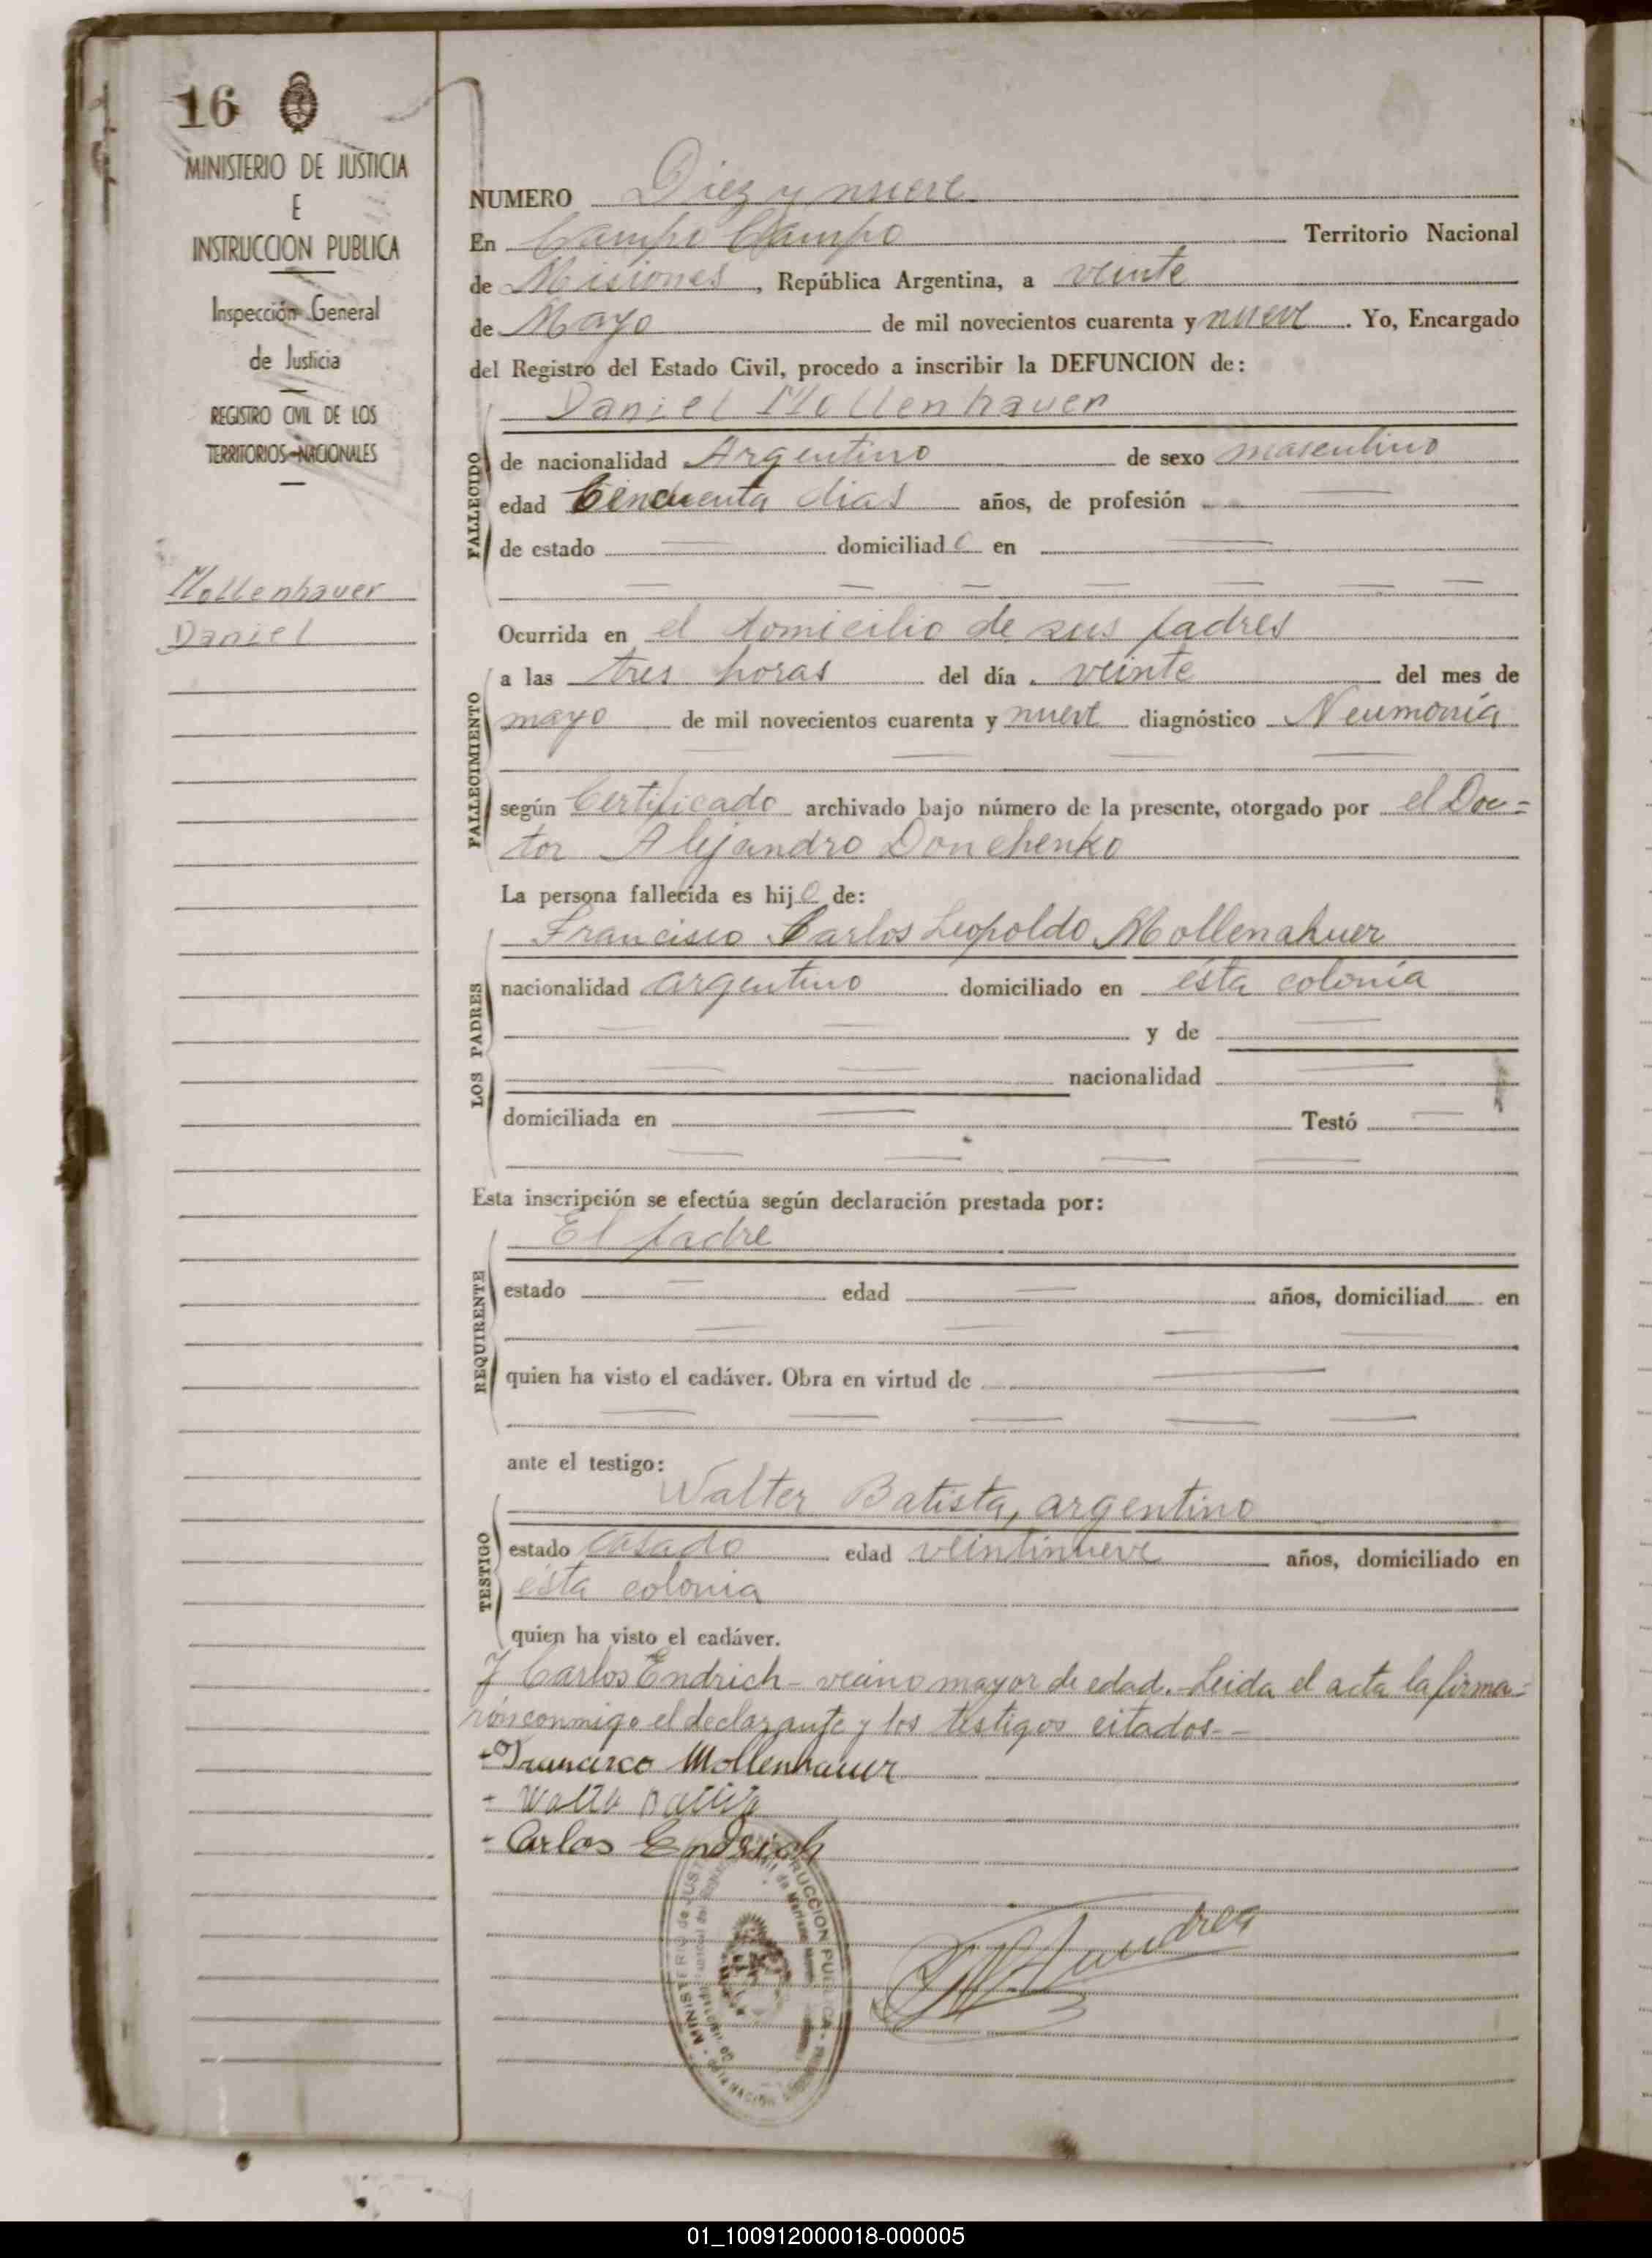 16
MINISTERIO DE JUSTICIA
E
INSTRUCCION PUBLICA
Inspección General
de Justicia
REGISTRO CIVIL DE LOS
TERRITORIOS NACIONALES
Mollenhauer
Daniel
NUMERO Diez y nueve
En Campo Campo Territorio Nacional
de Misiones, República Argentina, a veinte
de Mayo de mil novecientos cuarenta y nueve. Yo, Encargado
del Registro del Estado Civil, procedo a inscribir la DEFUNCION de:
Daniel Mollenhauer
FALLECIDO
de nacionalidad Argentino de sexo masculino
edad Cincuenta dias años, de profesión —
de estado — domiciliado en —
Ocurrida en el domicilio de sus padres
FALLECIMIENTO
a las tres horas del día veinte del mes de
mayo de mil novecientos cuarenta y nueve diagnóstico Neumonía
según Certificado archivado bajo número de la presente, otorgado por el Doc=
tor Alejandro Donchenko
La persona fallecida es hijo de:
LOS PADRES
Francisco Carlos Leopoldo Mollenahuer
nacionalidad argentino domiciliado en ésta colonia
y de —
nacionalidad —
domiciliada en — Testó —
Esta inscripción se efectúa según declaración prestada por:
REQUIRENTE
El padre
estado — edad — años, domiciliad en
quien ha visto el cadáver. Obra en virtud de —
ante el testigo:
TESTIGO
Walter Batista, argentino
estado casado edad veintinueve años, domiciliado en
ésta colonia
quien ha visto el cadáver.
Y Carlos Endrich - vecino mayor de edad. Leida el acta la firma-
rón conmigo el declarante y los testigos citados.-
- Francisco Mollenhauer
- Carlos Endrich
01_100912000018-000005